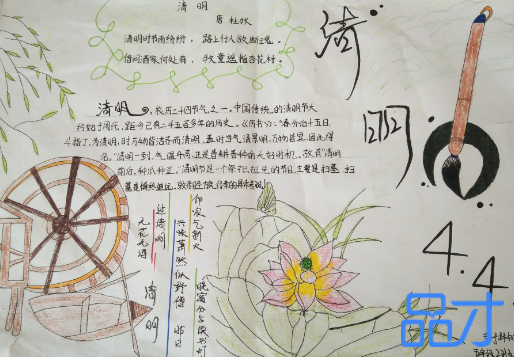 清明
唐 杜牧
清明时节雨纷纷，路上行人欲断魂。
借问酒家何处有，牧童遥指杏花村。
清明，农历二十四节气之一，中国传统的清明节大
约始于周代，距今已有二千五百多年的历史。《历书》：春分后十五日，
斗指丁，为清明，时万物皆洁齐而清明，盖时当气清景明，万物皆显，因此得
名。"清明一到，气温升高，正是春耕春种的大好时机，故有"清明
前后，种瓜种豆。"清明节是一个祭祀祖先的节日，主要是扫墓，扫
清
明
4.4
清明
无花无酒
过清明
兴味萧然似野僧
昨日
邻家乞新火
晓窗分与读书灯
品才